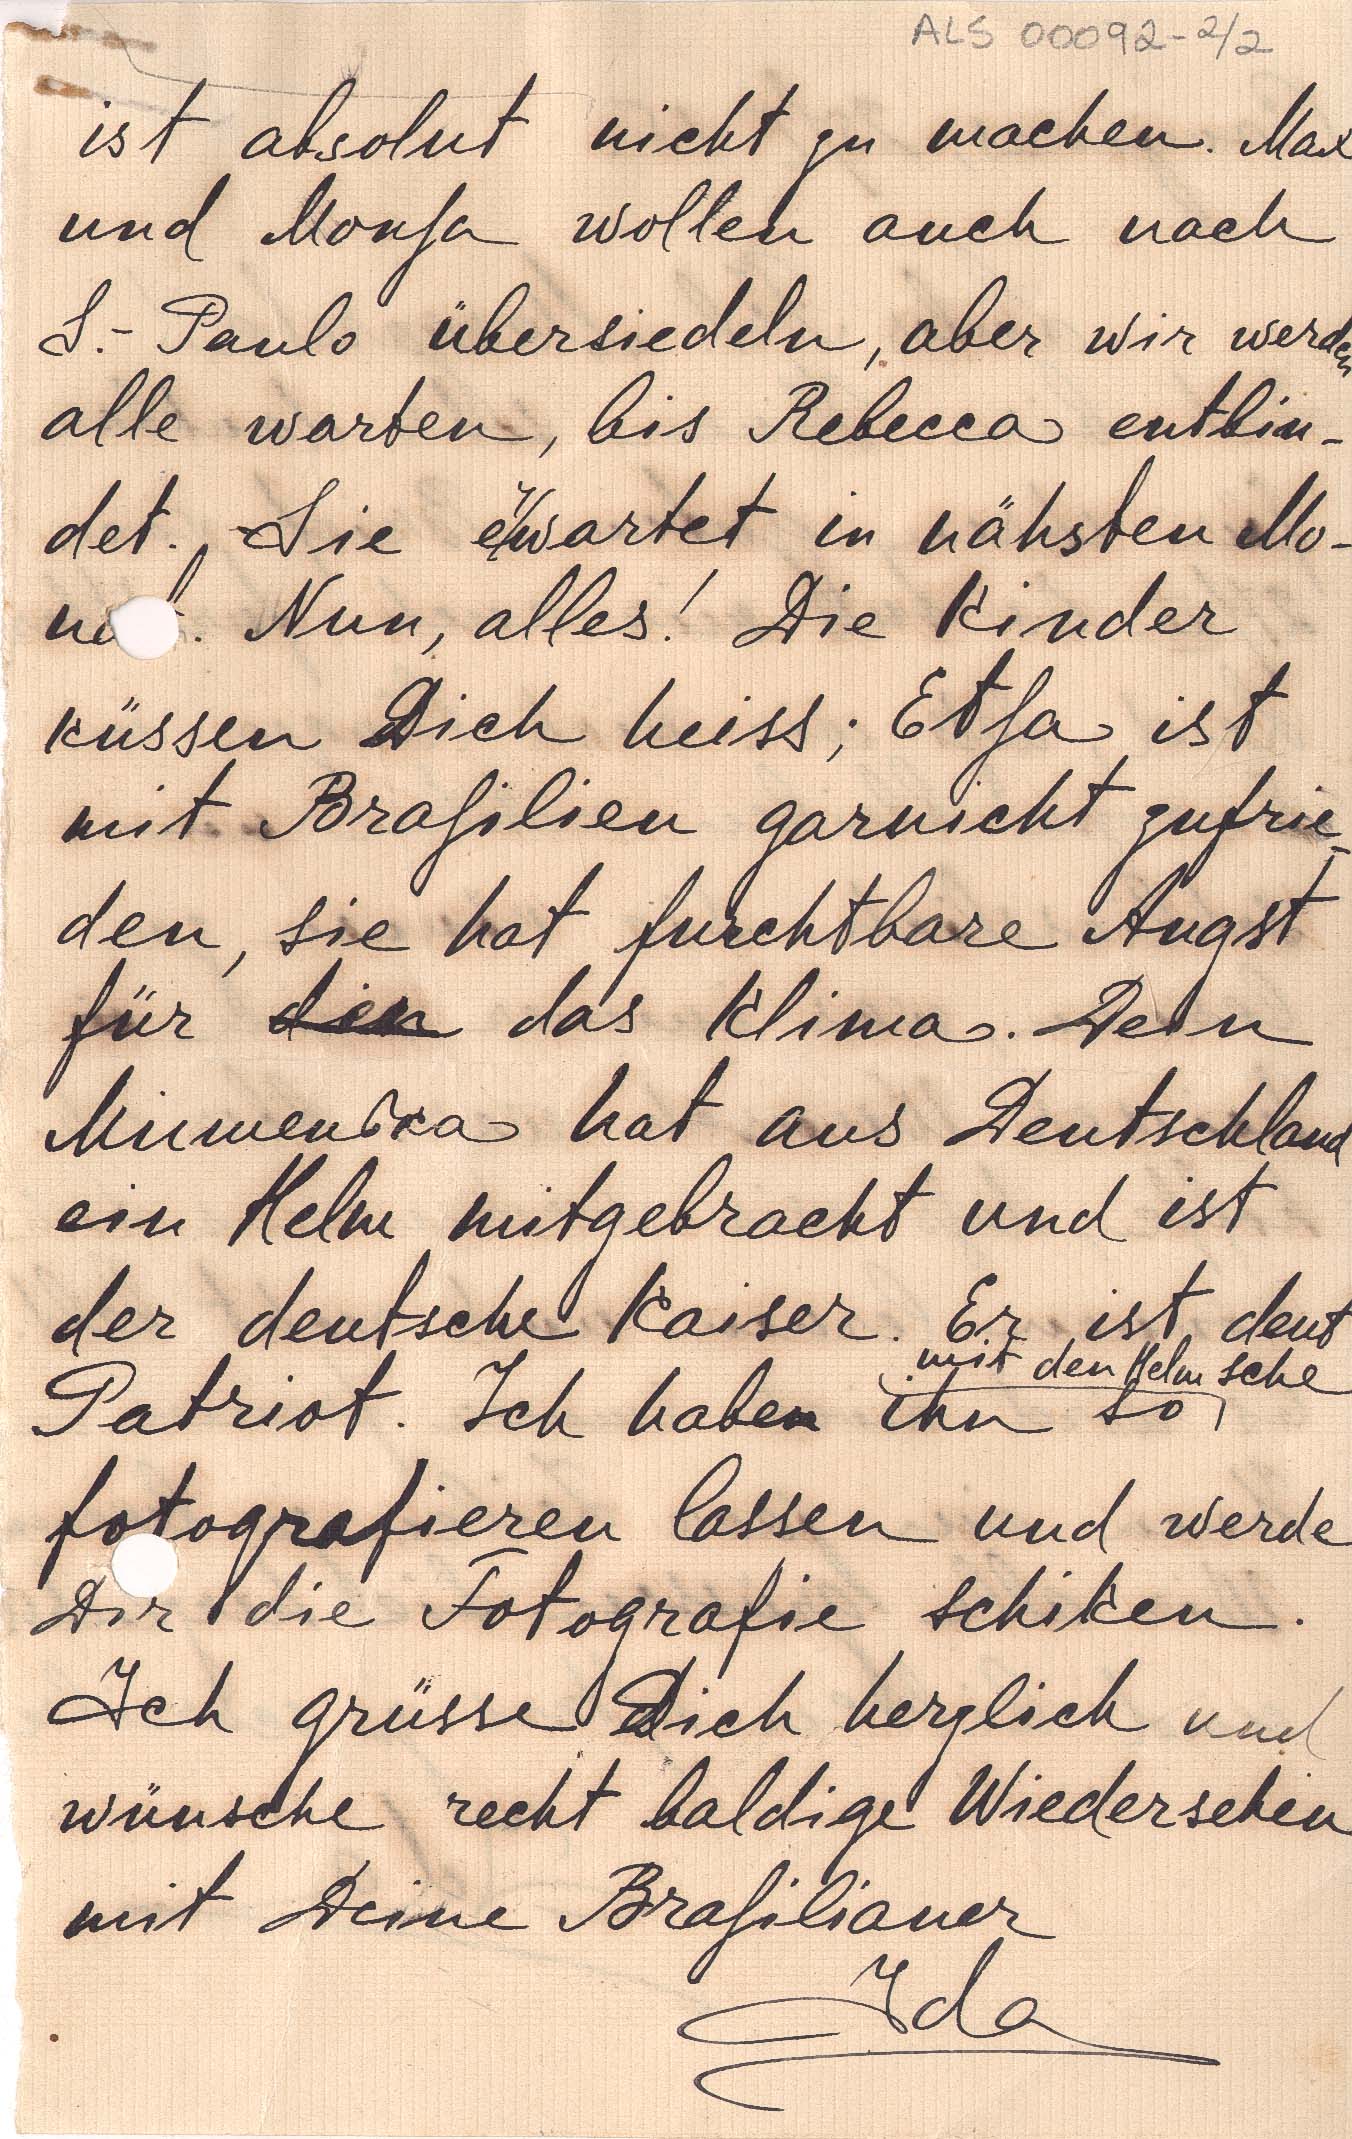 ALS 00092-2/2
ist absolut nicht zu machen. Max
und Monja wollen auch nach
S.- Paulo übersiedeln, aber wir werden
alle warten, bis Rebecca entbin-
det. Sie erwartet in nähsten Mo-
nat. Nun, alles! Die Kinder
küssen Dich heiss; Etja ist
mit Brasilien garnicht zufrie-
den, sie hat furchtbare Angst
für den das Klima. Dein
hat aus Deutschland
ein Helm mitgebracht und ist
der deutsche Kaiser. Er ist deut
sche
mit den Helm
Patriot. Ich habe ihn so
fotografieren lassen und werde
Dir die Fotografie schiken.
Ich grüsse Dich herzlich und
wünsche recht baldige Wiedersehen
mit Deine Brasilianer
Ida